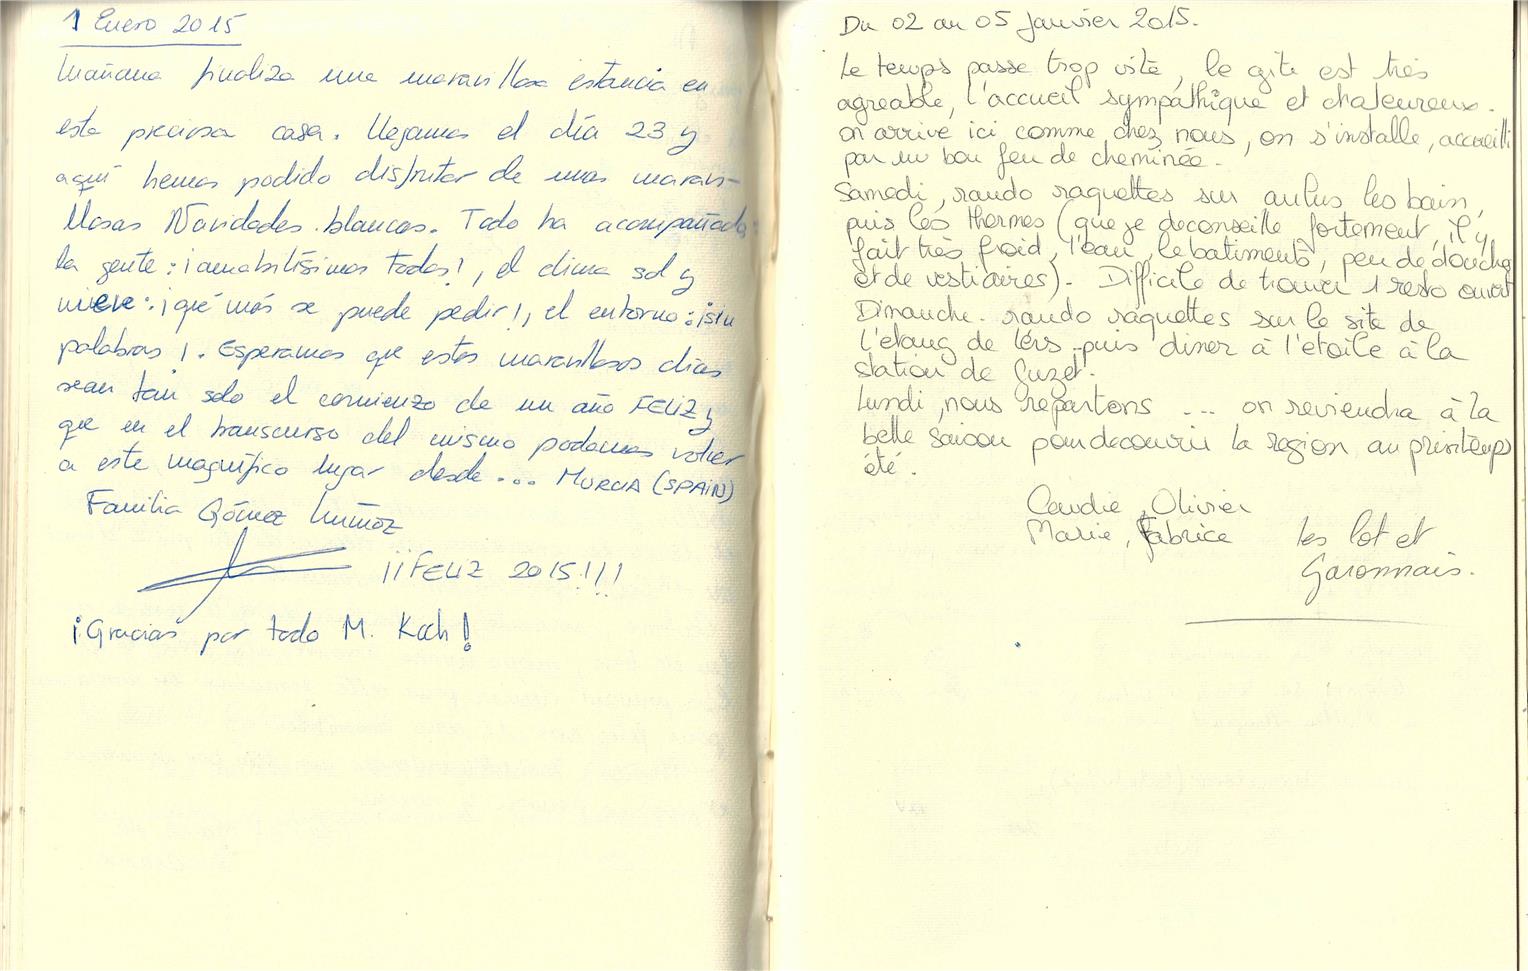 1 Enero 2015
Mañana finaliza una maravillosa estancia en
esta preciosa casa. Llegamos el día 23 y
aquí hemos podido disfrutar de unas maravi-
llosas Navidades blancas. Todo ha acompañado:
la gente: ¡amabilísimos todos!, el clima sol y
nieve: ¡qué más se puede pedir!, el entorno: ¡sin
palabras!. Esperamos que estos maravillosos días
sean tan solo el comienzo de un año FELIZ y
que en el transcurso del mismo podamos volver
a este magnífico lugar desde... MURCIA (SPAIN)
Familia Gómez Muñoz
¡¡FELIZ 2015!!!
¡Gracias por todo M. Koch!
Du 02 au 05 Janvier 2015.
Le temps passe trop vite, le gite est très
agreable, l'accueil sympathique et chaleureux.
on arrive ici comme chez nous, on s'installe, accueilli
par un bon feu de cheminée.
Samedi, rando raquettes sur aulus les bain,
puis les thermes (que je deconseille fortement, il y
fait très froid, l'eau, le batiments, peu de douches
et de vestiaires). Difficile de trouver 1 resto ouvert
Dimanche. rando raquettes sur le site de
l'etang de lers. puis diner à l'etoile à la
station de Guzet.
Lundi, nous repartons ... on reviendra à la
belle saison pour decouvrir la region au printemps
été.
Claudie, Olivier
Marie, Fabrice les lot et
Garonnais.